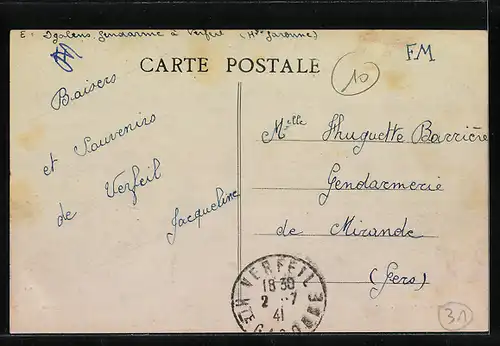 E. Dgalens, Gendarme à Verfeil (Hte Garonne)
FM
CARTE POSTALE
10
Baisers
et Souvenirs
de Verfeil
Jacqueline
Melle Huguette Barrière
Gendarmerie
de Mirande
(Gers)
VERFEIL
18 30
2 - 7
41
HTE GARONNE
31